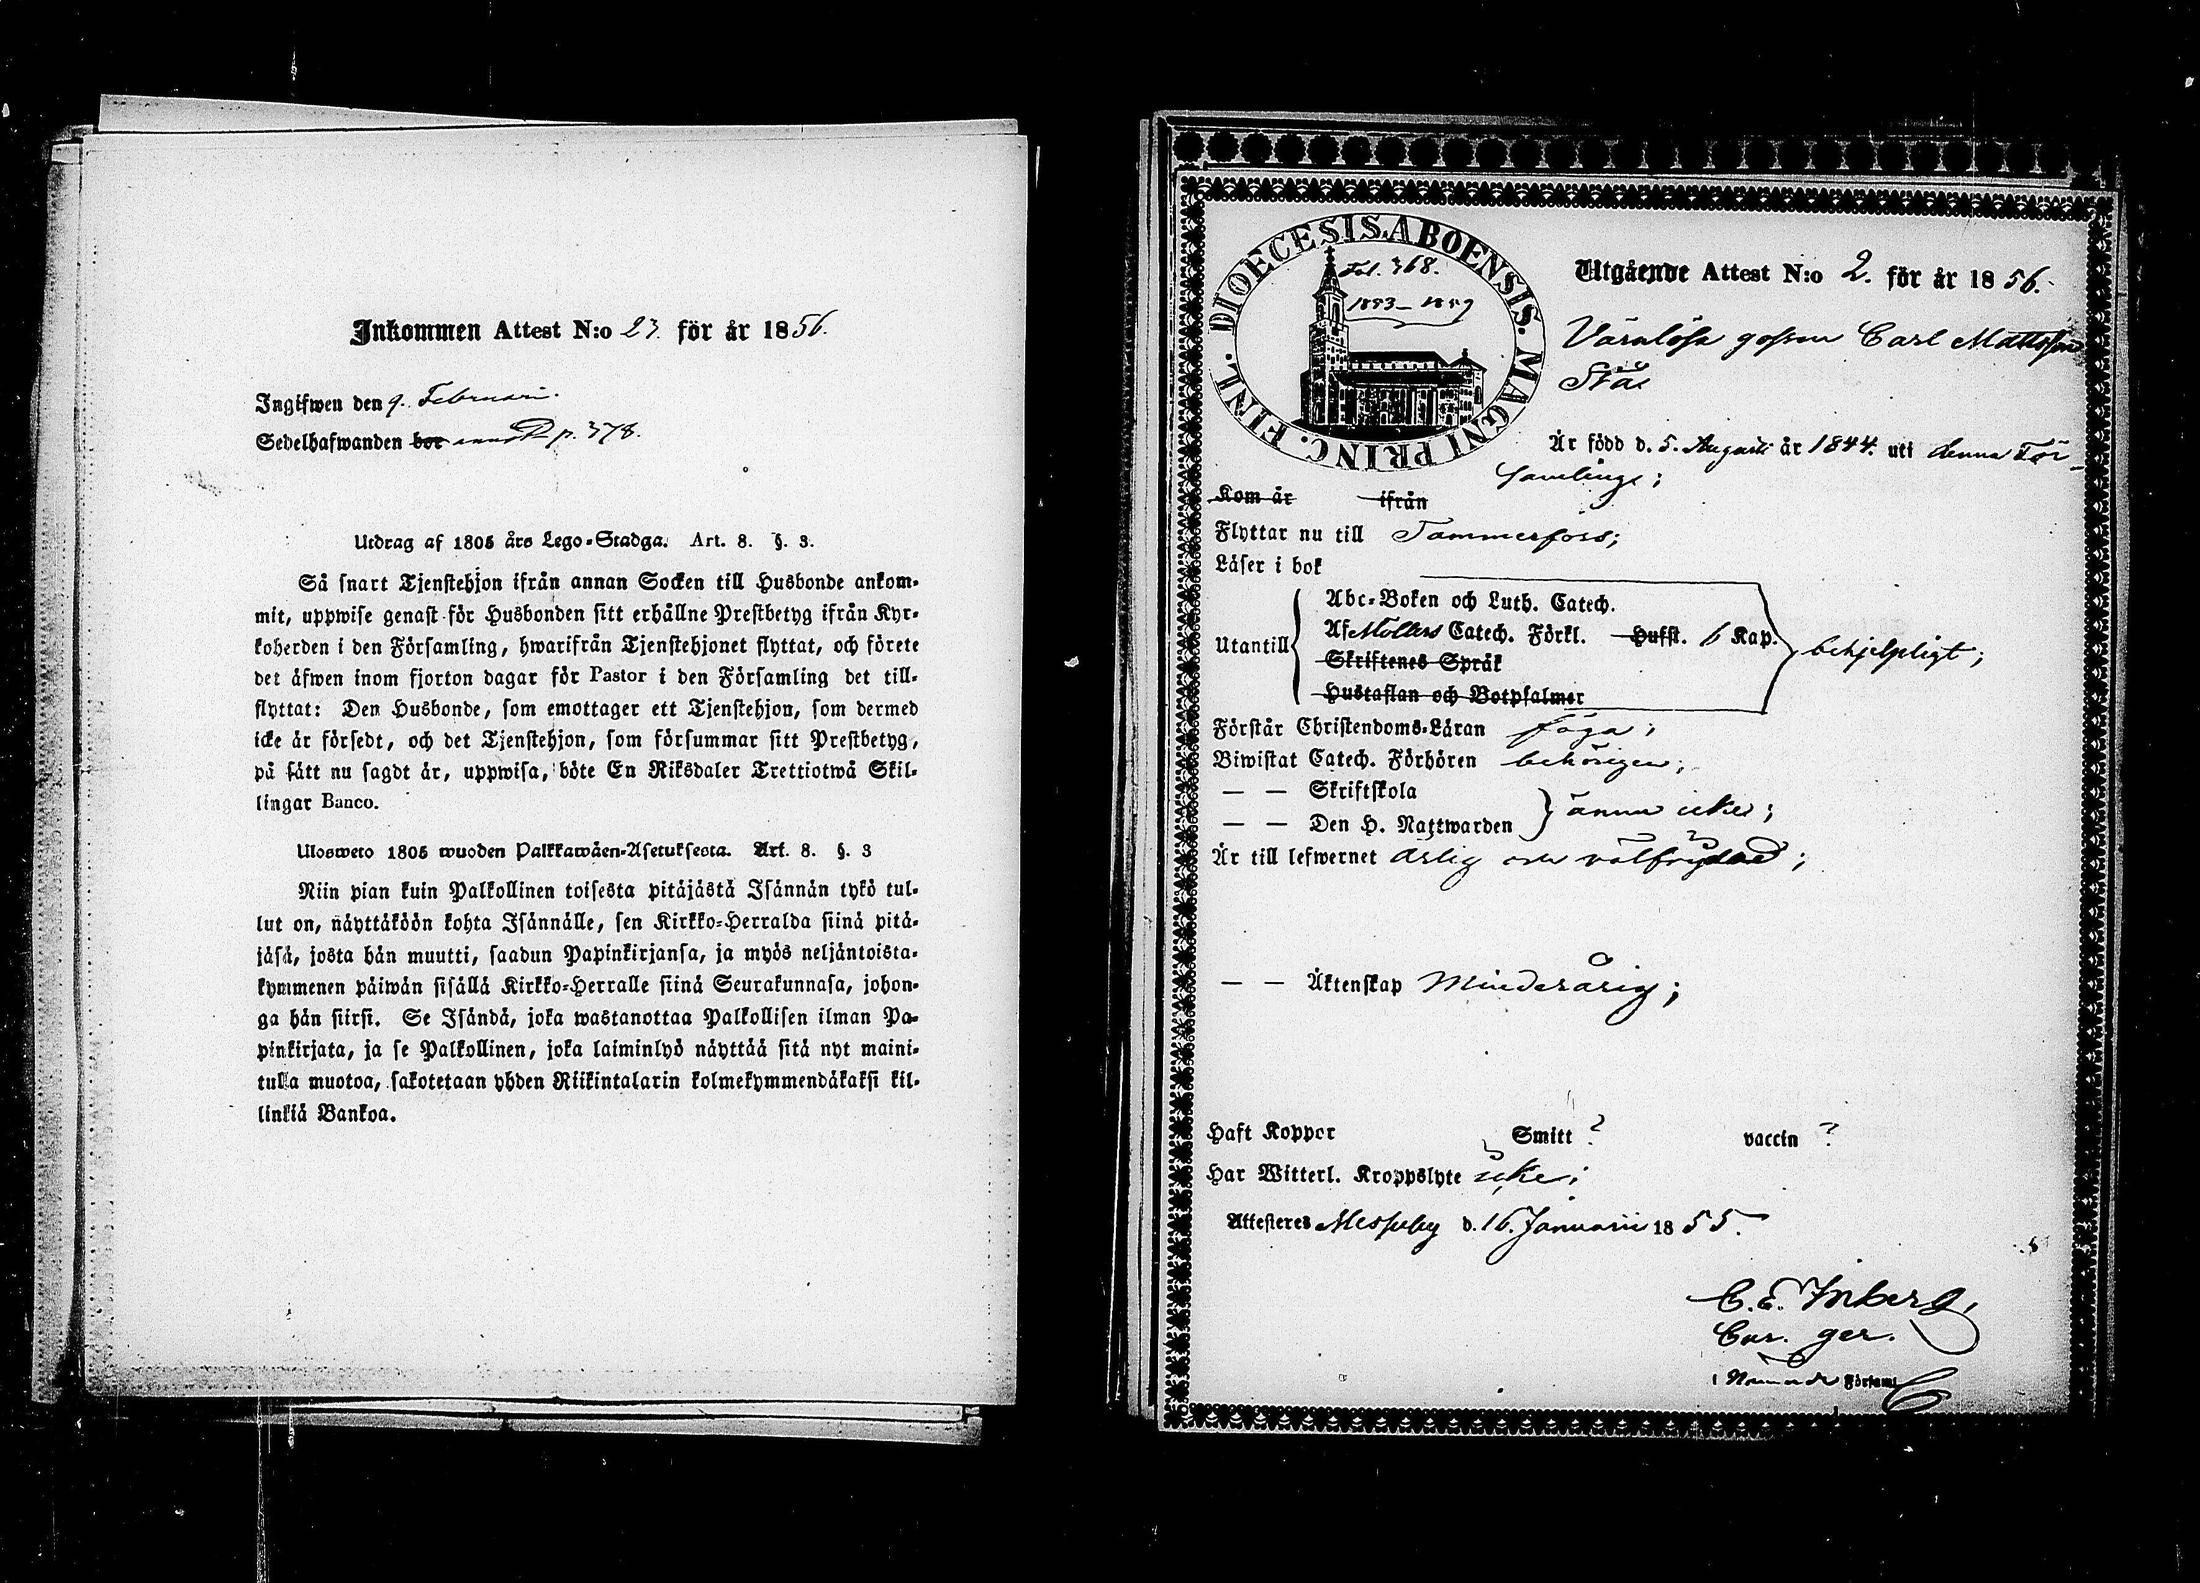 Inkommen Attest N:o 23. för år 1856.
Ingifwen den 9. Februari.
Sedelhafwanden bor p. 378.
Utdrag af 1805 års Lego-Stadga. Art. 8. §. 3.
Så snart Tjenstehjon ifrån annan Socken till Husbonde ankom-
mit, uppwise genast för Husbonden sitt erhållne Prestbetyg ifrån Kyr-
koherden i den Församling, hwarifrån Tjenstehjonet flyttat, och förete
det äfwen inom fjorton dagar för Pastor i den Församling det till-
flyttat: Den Husbonde, som emottager ett Tjenstehjon, som dermed
icke är försedt, och det Tjenstehjon, som försummar sitt Prestbetyg,
på sätt nu sagdt är, uppwisa, böte En Riksdaler Trettiotwå Skil-
lingar Banco.
Ulosweto 1805 wuoden Palkkawäen-Asetuksesta. Art. 8. §. 3
Niin pian kuin Palkollinen toisesta pitäjästä Isännän tykö tul-
lut on, näyttäköön kohta Isännälle, sen Kirkko-Herralda siinä pitä-
jäsä, josta hän muutti, saadun Papinkirjansa, ja myös neljäntoista-
kymmenen päiwän sisällä Kirkko-Herralle siinä Seurakunnasa, johon-
ga hän siirsi. Se Isändä, joka wastanottaa Palkollisen ilman Pa-
pinkirjata, ja se Palkollinen, joka laiminlyö näyttää sitä nyt maini-
tulla muotoa, sakotetaan yhden Riikintalarin kolmekymmendäkaksi kil-
linkiä Bankoa.
DIOECESIS ABOENSIS. MAGNI PRINC. FINL.
Fol. 368.
1853–1859
Utgående Attest N:o 2. för år 1856.
Värnlösa gossen Carl Mattsson
Stål
Är född d. 5. Augusti år 1844. uti denna För-
samlinge;
Kom år ifrån
Flyttar nu till Tammerfors;
Läser i bok
Utantill
Abc-Boken och Luth. Catech.
Af Möllers Catech. Förkl. Hufst. 6 Kap.
Skriftenes Språk
Hustaflan och Botpsalmer
behjelpligt;
Förstår Christendoms-Läran föga;
Biwistat Catech. Förhören behörigen;
— — Skriftskola
— — Den H. Nattwarden
ännu icke;
Är till lefwernet ärlig och välfrejdad;
— — Äktenskap Minderårig;
Haft Koppor Smitt ? vaccin ?
Har Witterl. Kroppslyte icke;
Attesteres Messuby d. 16. Januarii 1855.
C. E. Inberg,
Cur. ger.
i Nämnde Församl